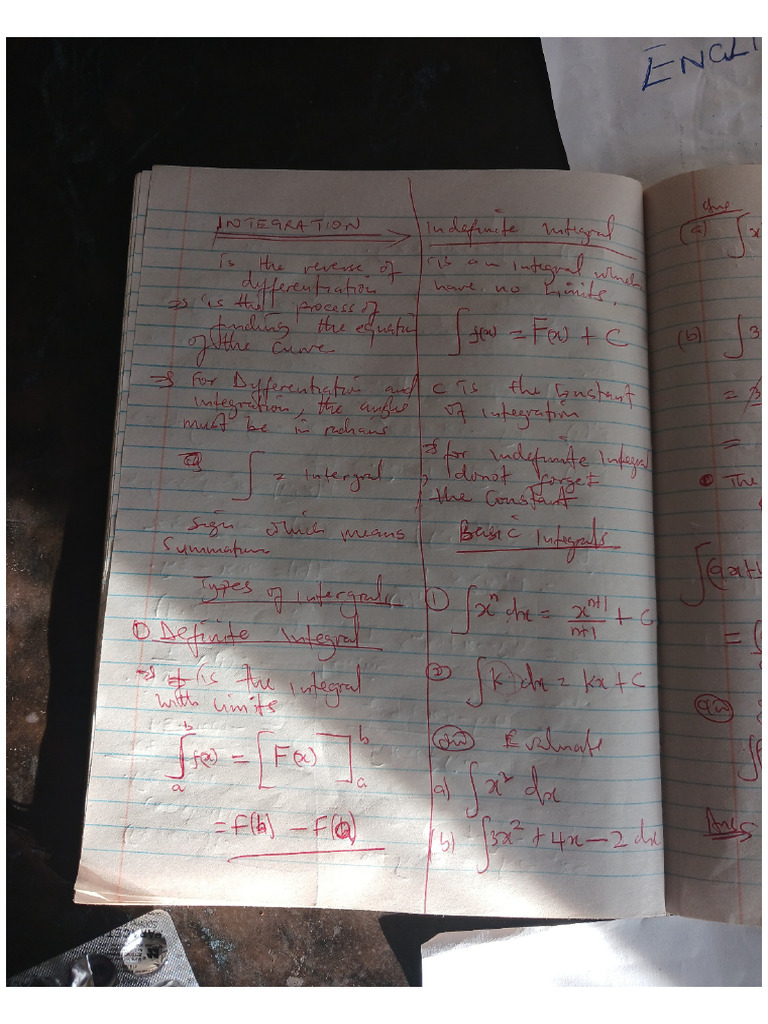 ENGLI
INTEGRATION
is the reverse of
differentiation
⇒ is the process of
finding the equation
of the curve
⇒ For Differentiation and
integration, the angles
must be in radians
∫ = intergral
sign which means
Summation
Types of intergrals
① Definite Integral
⇒ is the integral
with limits
∫ₐᵇ f(x) = [F(x)]ₐᵇ
= F(b) − F(a)
Indefinite integral
is an integral which
have no limits.
∫ f(x) = F(x) + C
C is the constant
of integration
⇒ for indefinite integral
, donot forget
the constant
Basic Integrals
① ∫ xⁿ dx = xⁿ⁺¹/n+1 + C
② ∫ K dx = Kx + C
Evaluate
a) ∫ x² dx
(b) ∫ 3x² + 4x − 2 dx
ans
(a) ∫ x
(b) ∫ 3
=
=
The
∫ (ax+
= (
Ans